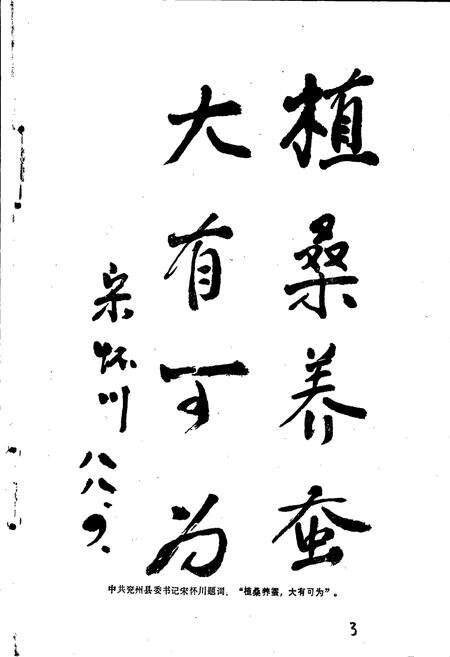 植桑养蚕
大有可为
宋怀川
八八.9.
中共兖州县委书记宋怀川题词，“植桑养蚕，大有可为”。
3